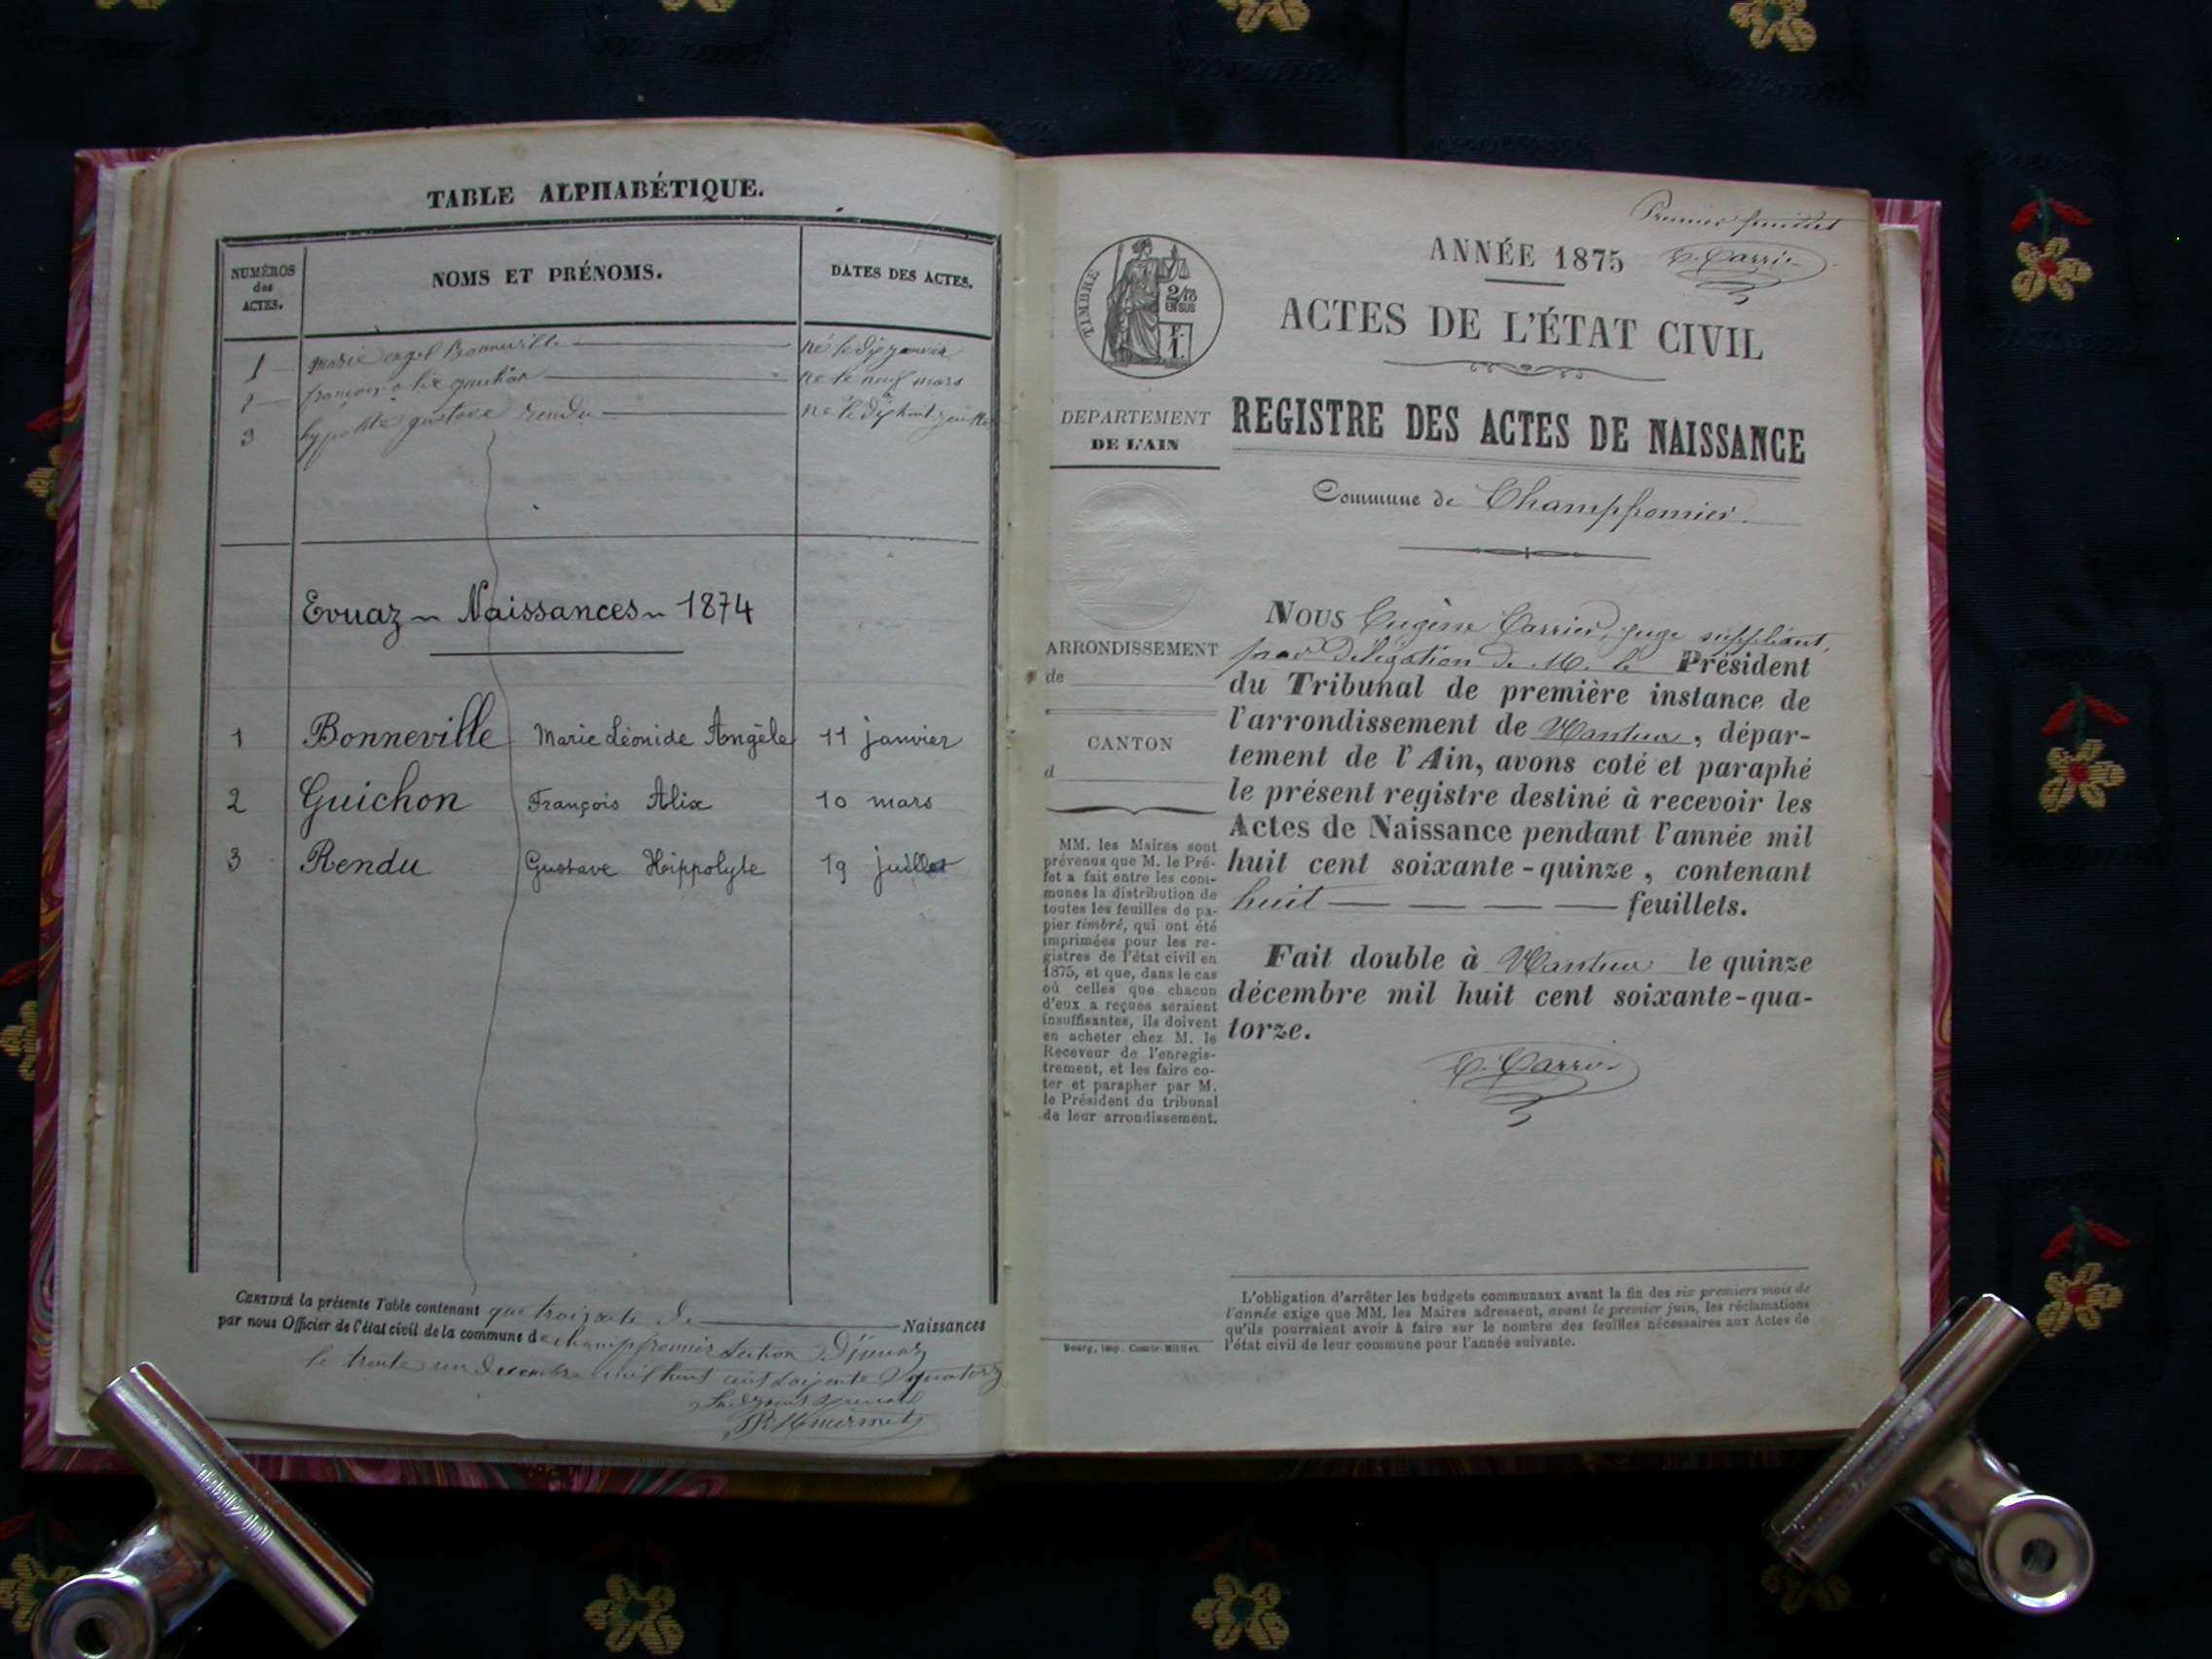 TABLE ALPHABÉTIQUE.
NUMÉROS
des
ACTES.
NOMS ET PRÉNOMS.
DATES DES ACTES.
1 marie Bonneville né le dix janvier
2 né le neuf mars
3 hypolite gustave rendu né le dix huit
Evuaz ~ Naissances ~ 1874
1 Bonneville Marie Léonide Angèle 11 janvier
2 Guichon François Alix 10 mars
3 Rendu Gustave Hippolyte 19 juillet
CERTIFIÉ la présente Table contenant que trois acte de Naissances
par nous Officier de l'état civil de la commune de champfromier section
le trente un décembre mil huit cent soixente quatorz
Premier feuillet
ANNÉE 1875
TIMBRE
2/10
EN SUS
ACTES DE L'ÉTAT CIVIL
DÉPARTEMENT
DE L'AIN
REGISTRE DES ACTES DE NAISSANCE
Commune de Champfromier
ARRONDISSEMENT
de
CANTON
d
MM. les Maires sont
prévenus que M. le Pré-
fet a fait entre les com-
munes la distribution de
toutes les feuilles de pa-
pier timbré, qui ont été
imprimées pour les re-
gistres de l'état civil en
1875, et que, dans le cas
où celles que chacun
d'eux a reçues seraient
insuffisantes, ils doivent
en acheter chez M. le
Receveur de l'enregis-
trement, et les faire co-
ter et parapher par M.
le Président du tribunal
de leur arrondissement.
Bourg, imp. Comte-Milliet.
NOUS Eugène Carrier, juge suppléant,
par délégation de M. le Président
du Tribunal de première instance de
l'arrondissement de Nantua, dépar-
tement de l'Ain, avons coté et paraphé
le présent registre destiné à recevoir les
Actes de Naissance pendant l'année mil
huit cent soixante-quinze, contenant
huit feuillets.
Fait double à Nantua le quinze
décembre mil huit cent soixante-qua-
torze.
L'obligation d'arrêter les budgets communaux avant la fin des six premiers mois de
l'année exige que MM. les Maires adressent, avant le premier juin, les réclamations
qu'ils pourraient avoir à faire sur le nombre des feuilles nécessaires aux Actes de
l'état civil de leur commune pour l'année suivante.